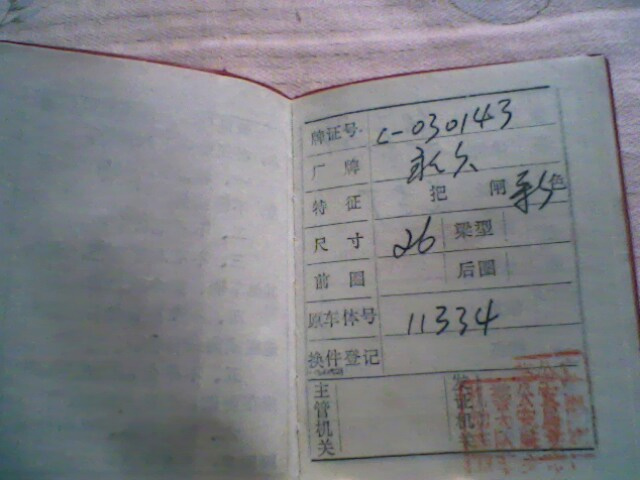 牌证号 C-030143
厂牌 永久
特征 把 闸 彩色
尺寸 26 梁型
前圈 后圈
原车体号 11334
换件登记
主管机关 发证机关